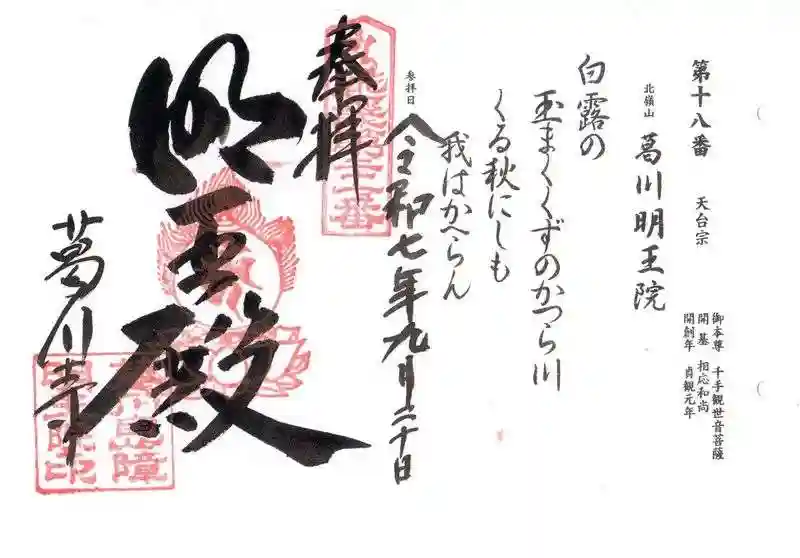 第十八番 天台宗
北嶺山 葛川明王院
御本尊 千手観世音菩薩
開基 相応和尚
開創年 貞観元年
白露の
玉まくくずのかつら川
くる秋にしも
我はかへらん
参拝日
令和七年九月二十日
奉拝
明王殿
葛川寺